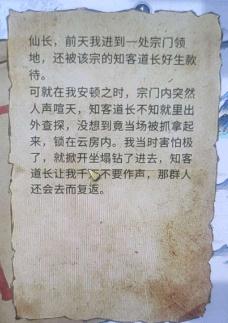 仙长，前天我进到一处宗门领
地，还被该宗的知客道长好生款
待。
可就在我安顿之时，宗门内突然
人声喧天，知客道长不知就里出
外查探，没想到竟当场被抓拿起
来，锁在云房内。我当时害怕极
了，就掀开坐塌钻了进去，知客
道长让我千万不要作声，那群人
还会去而复返。